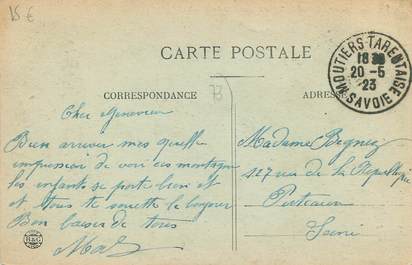 15 €
CARTE POSTALE
MOUTIERS-TARENTAISE
18
20-5
23
SAVOIE
CORRESPONDANCE
73
ADRES
Cher
Bien arriver mes quelle
impression de voir ces montagne
les enfants se porte bien et
et tous te souette le bonjour
Bon baiser de tous
Madame
127 rue de la République
Puteaux
Seine
B&G